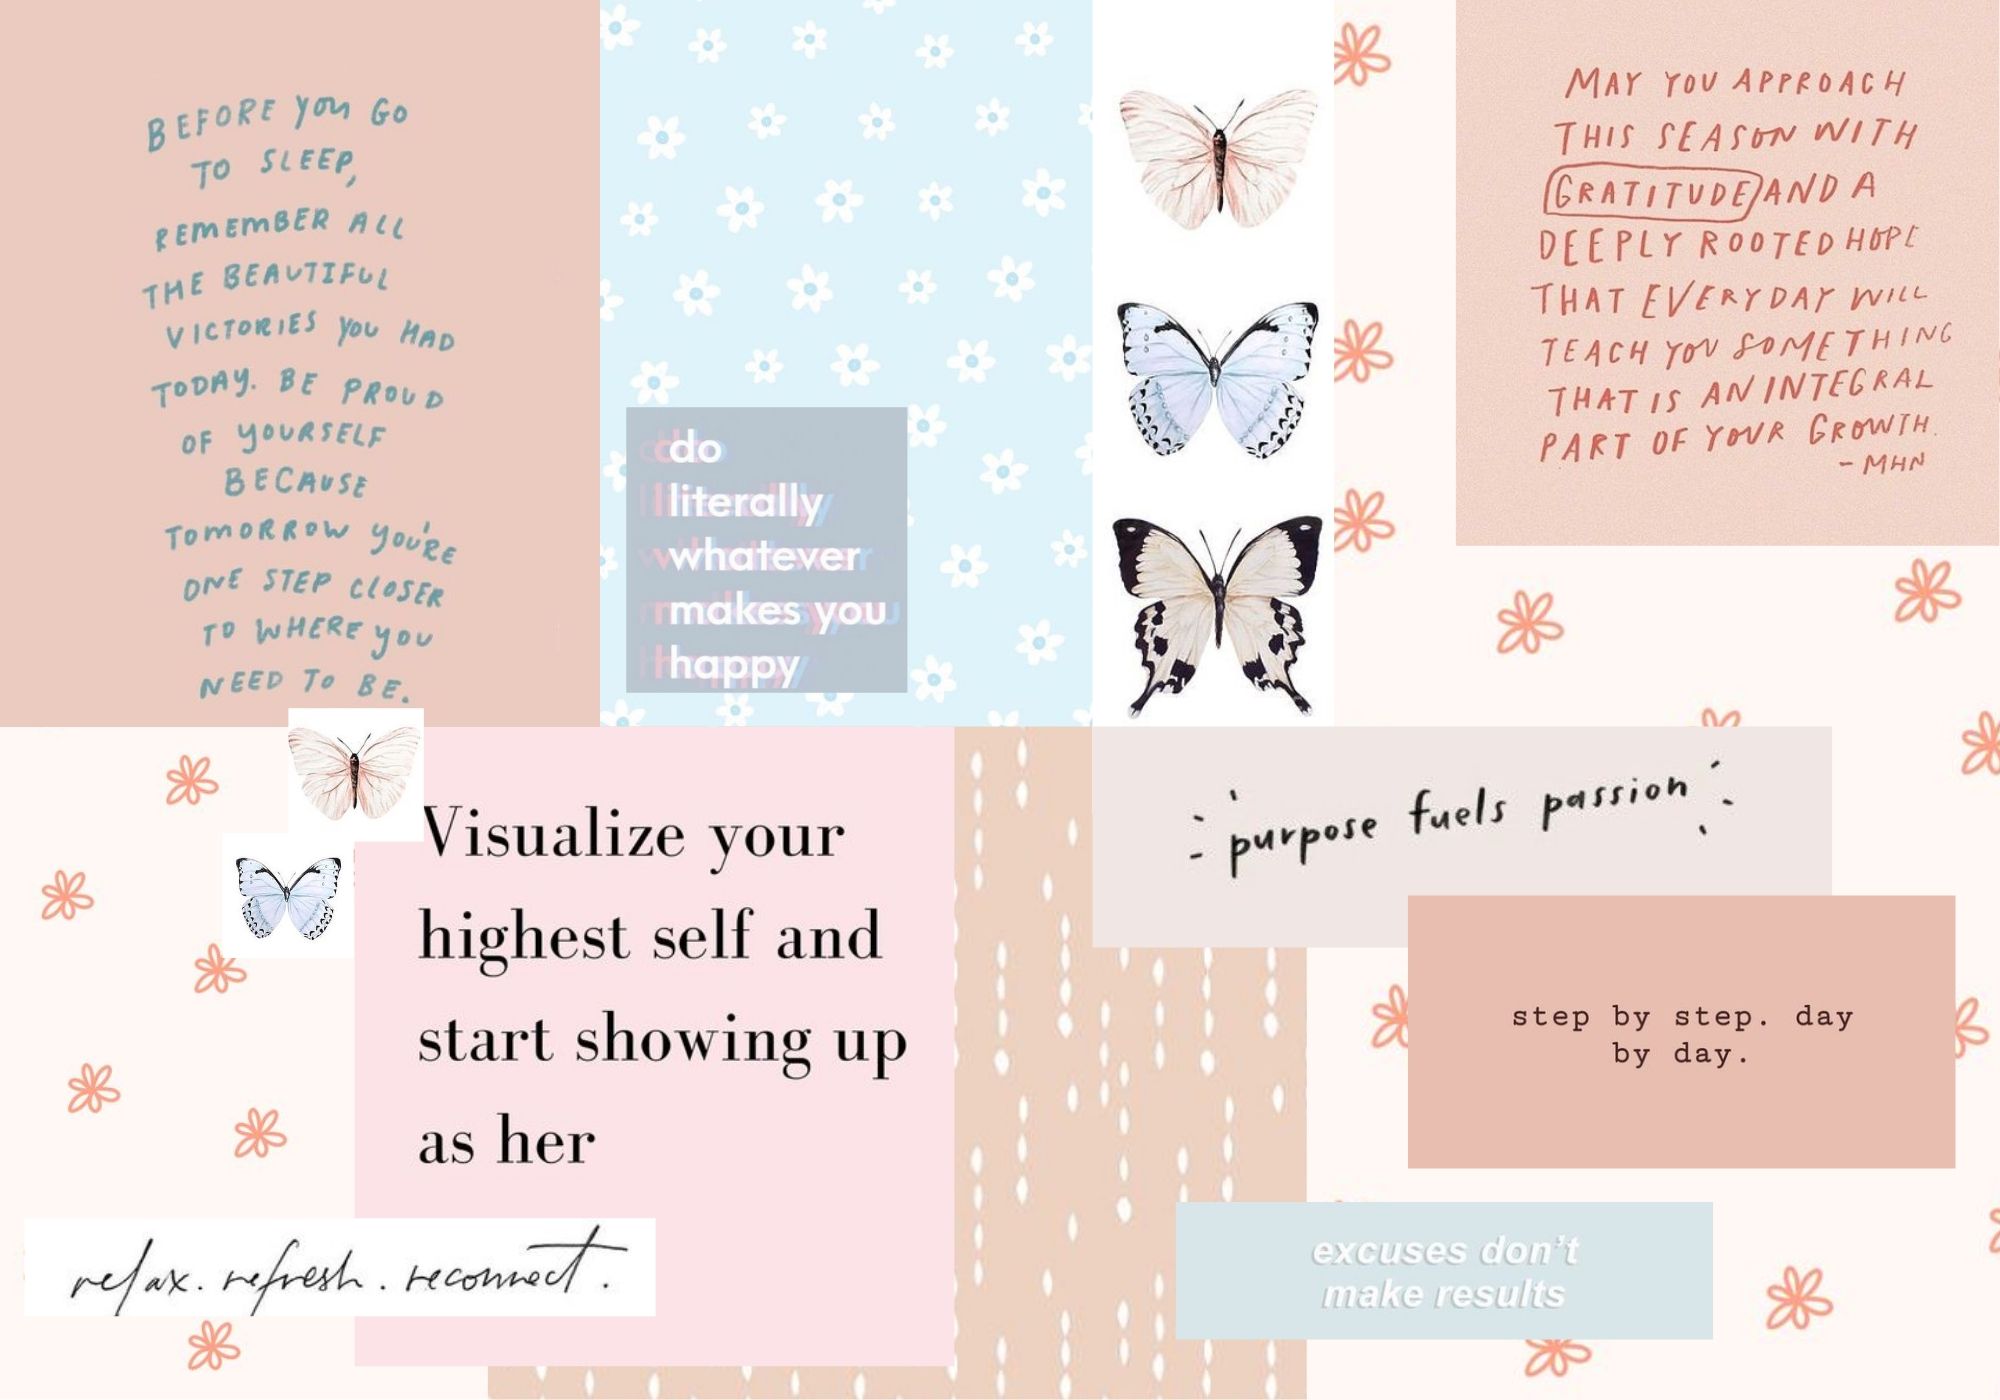 BEFORE YOU GO
TO SLEEP,
REMEMBER ALL
THE BEAUTIFUL
VICTORIES YOU HAD
TODAY. BE PROUD
OF YOURSELF
BECAUSE
TOMORROW YOU'RE
ONE STEP CLOSER
TO WHERE YOU
NEED TO BE.
do
literally
whatever
makes you
happy
MAY YOU APPROACH
THIS SEASON WITH
GRATITUDE AND A
DEEPLY ROOTED HOPE
THAT EVERYDAY WILL
TEACH YOU SOMETHING
THAT IS AN INTEGRAL
PART OF YOUR GROWTH.
- MHN
Visualize your
highest self and
start showing up
as her
purpose fuels passion
step by step. day
by day.
relax. refresh. reconnect.
excuses don't
make results